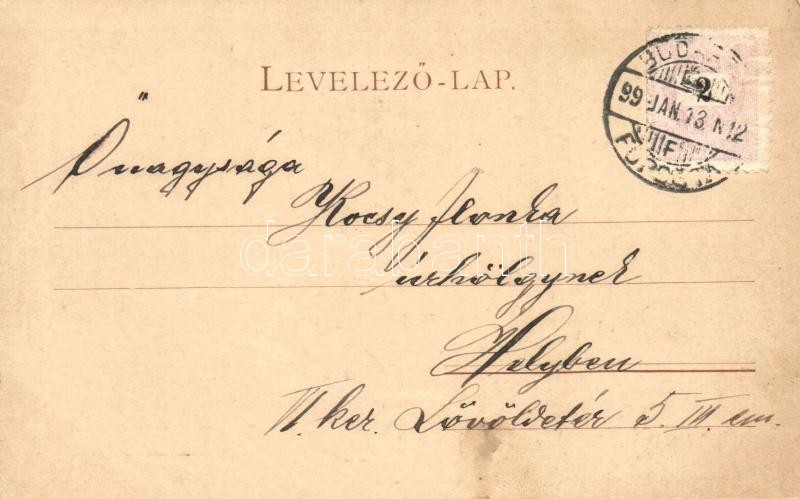 LEVELEZŐ-LAP.
2
99 JAN. 13. N 12
Őnagysága
Kocsy Ilonka
darabanth
úrhölgynek
Helyben
VI. ker. Lövöldetér 5. III. em.